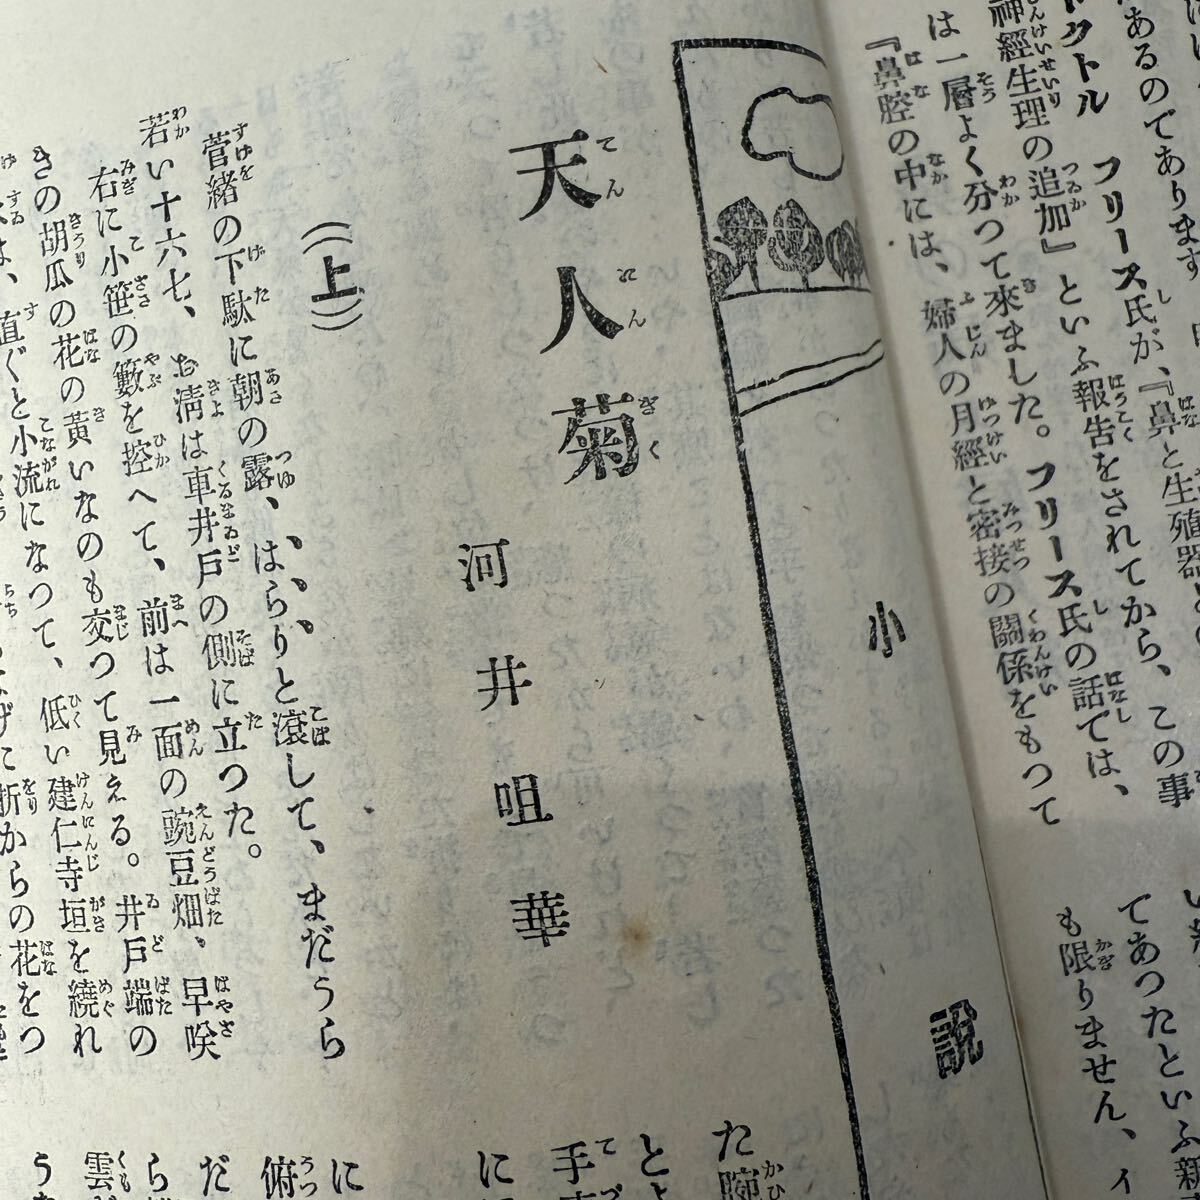 あるのであります
ドクトル フリース氏が、『鼻と生殖器
神經生理の追加』といふ報告をされてから、この事
は一層よく分つて來ました。フリース氏の話では、
『鼻腔の中には、婦人の月經と密接の關係をもつて
てあつたといふ
も限りません、
小説
天人菊
河井咀華
(上)
菅緒の下駄に朝の露、はらりと滾して、まだうら
若い十六七、お淸は車井戸の側に立つた。
右に小笹の籔を控へて、前は一面の豌豆畑、早咲
きの胡瓜の花の黃いなのも交つて見える。井戸端の
は、直ぐと小流になつて、低い建仁寺垣を繞れ
折からの花をつ
た
と
手
に
に
俯
だ
雲
う